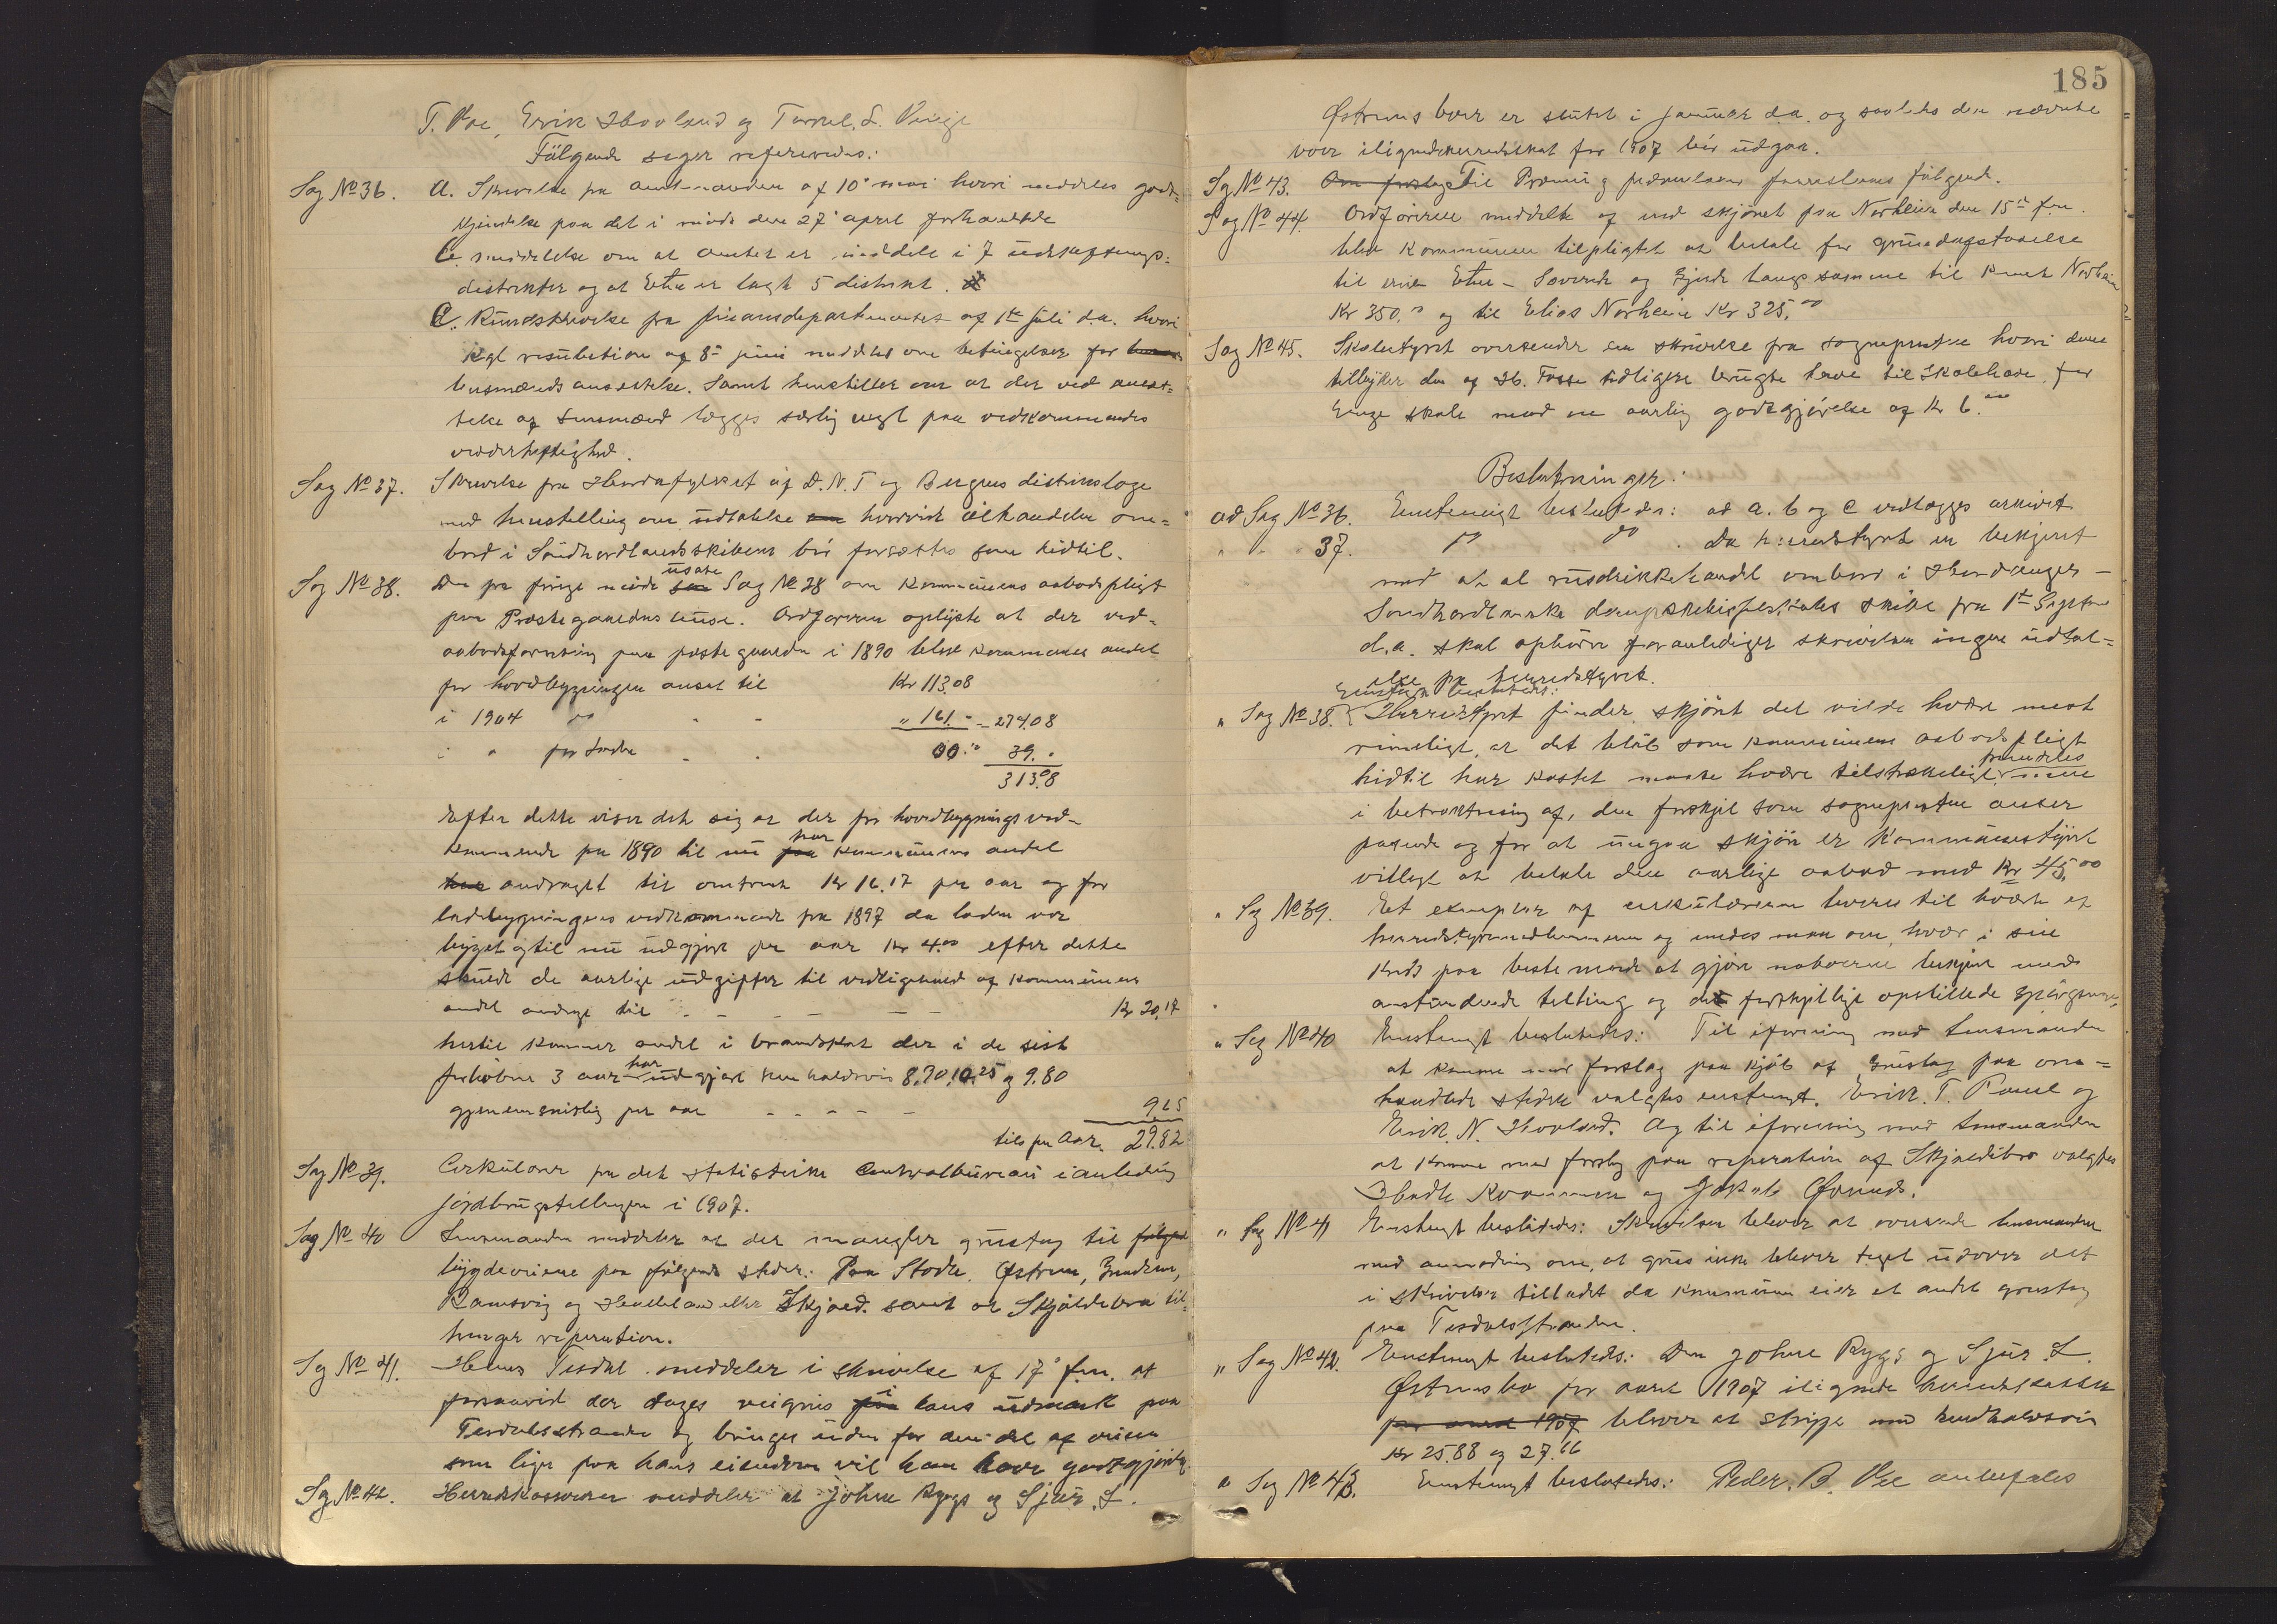 T. Vae, Erik Hovland og Torkel. L. Vinje
Følgende sager refereredes:
Sag No 36. a. Skrivelse fra amtmanden af 10de mai hvori meddeles god=
kjendelse paa det i møde den 27de april forhandlede
b. meddelelse om at amtet er inddelt i 7 udskiftnings=
distrikter og at Etne er lagt 5 distrikt.
C. Rundskrivelse fra finansdepartementet af 1ste juli d.a. hvori
kgl resolution af 8de juni meddeles om betingelser for
lensmænds ansættelse. Samt henstiller om at der ved ansæt=
telse af lensmænd lægges særlig vegt paa vedkommendes
vederheftighed.
Sag No 37. Skrivelse fra Hordafylket af D.N.T og Bergens distriktsloge
med henstilling om udtalelse hvorvidt ølhandelen om=
bord i Søndhordlandsskibene bør forsættes som hidtil.
Sag No 38. Den fra forige møde udsatte Sag No 28 om kommunens aabodspligt
paa Præstegaardens huse. Ordføreren oplyste at der ved
aabodsforretning paa præstegaarden i 1890 blev kommunens andel
for hovedbygningen ansat til Kr 113.08
i 1904 do - - " 161.- = 274.08
i " for Ladne - - 39.-
313.08
Efter dette viser det sig at der for hovedbygnings ved-
kommende fra 1890 til nu har kommunens andel
andraget til omtrent Kr 16.17 pr aar og for
ladebygningens vedkommende fra 1897 da laden var
bygget og til nu udgjort pr aar Kr 4.00 efter dette
skulde de aarlige udgifter til vedligehold af kommunens
andel andrage til - - - - - - Kr 20.17
hertil kommer andel i brandskat der i de sist
forløbne 3 aar har udgjort henholdsvis 8.90, 10.25 og 9.80
gjennemsnitlig pr aar - - - - - 9.65
tils pr Aar. 29.82
Sag No 39. Cirkulære fra det statistiske Centralbureau i anledning
jordbrugstellingen i 1907.
Sag No 40 Lensmanden meddeler at der mangler grustag til
bygdeveiene paa følgende steder: Paa Stødle, Østrem, Grindem,
Ramsvig og Hendeland eller Skjold. samt at Skjoldebro til=
trenger reperation.
Sag No 41. Hans Tesdal meddeler i skrivelse af 17de f.m. at
forsaavidt der tages veigrus i hans udmark paa
Tesdalsstranden og bringes uden for den del af veien
som liger paa hans eiendom vil han have godtgjørelse
Sag No 42. Herredskassereren meddeler at Johne Rygg og Sjur. L.
185
Østrems boer er sluttet i januar d.a. og saaledes den nævnte
voer ilignede herredsskat for 1907 bør udgaa.
Sag No 43. Til Præmie
Sag No 44. Ordføreren meddelte at ved skjønet paa Norheim den 15de f.m.
blev kommunen tilpligtet at betale for grundafstaaelse
til veien Etne - Søvende og Gjerde langs samme til Knut Norheim
Kr 350.00 og til Elias Norheim Kr 325.00
Sag No 45. Skolestyret oversender en skrivelse fra sognepresten hvori denne
tilbyder den af H. Fosse tidligere brugte have til Skolehave for
Enge skole mod en aarlig godtgjørelse af Kr 6.00
Beslutninger:
ad Sag No 36. Enstemigt besluttedes: ad a. b og c vedlægges arkivet
" " " 37. do do . Da herredstyret er bekjent
med at al rusdrikkehandel ombord i Hardanger-
Søndhordlandske dampskibsselskabs skibe fra 1ste Septbr
d.a. skal ophøre foranlediger skrivelsen ingen udtal=
else fra herredstyret.
Enstem besluttedes:
" Sag No 38. Herredstyret finder, skjønt det vilde hvære mest
rimeligt, at det beløb som kommunens aabodspligt
hidtil har kostet maatte hvære tilstrækkeligt fremdeles
i betraktning af, den forskjel som sognepresten anser
passende og for at undgaa skjøn er Kommunestyret
villigt at betale den aarlige aabod med Kr 45.00
" Sag No 39. Et exemplar af cirkulæreren leveres til hvært af
herredstyremedlemmerne og enedes man om, hvær i sin
Kreds paa beste maade at gjøre naboerne bekjent med
anstundende telling og de forskjellige opstillede spørgsmaal,
" Sag No 40 Enstemigt besluttedes: Til i forening med Lensmanden
at komme med forslag paa kjøb af grustag paa om=
handlede steder valgtes enstemigt. Erik. T. og
Erik. N. Hovland. Og til i forening med lensmanden
at komme med forslag paa reperation af Skjoldebro valgtes
og Jakob Øvernes.
" Sag No 41 Enstemigt besluttedes: Skrivelsen blever at oversende lensmanden
med anmodning om, at grus ikke blever taget udover det
i skrivelse tilladt da kommunen eier et andet grustag
paa Tesdalsstranden.
" Sag No 42. Enstemigt besluttedes: Den Johne Rygg og Sjur L.
Østrems bo for aaret 1907 ilignede herredsskatter
for aaret 1907 blever at stryge med henholdsvis
Kr 25.88 og 27.66
" Sag No 43. Enstemigt besluttedes: Peder. B. Vae anbefales